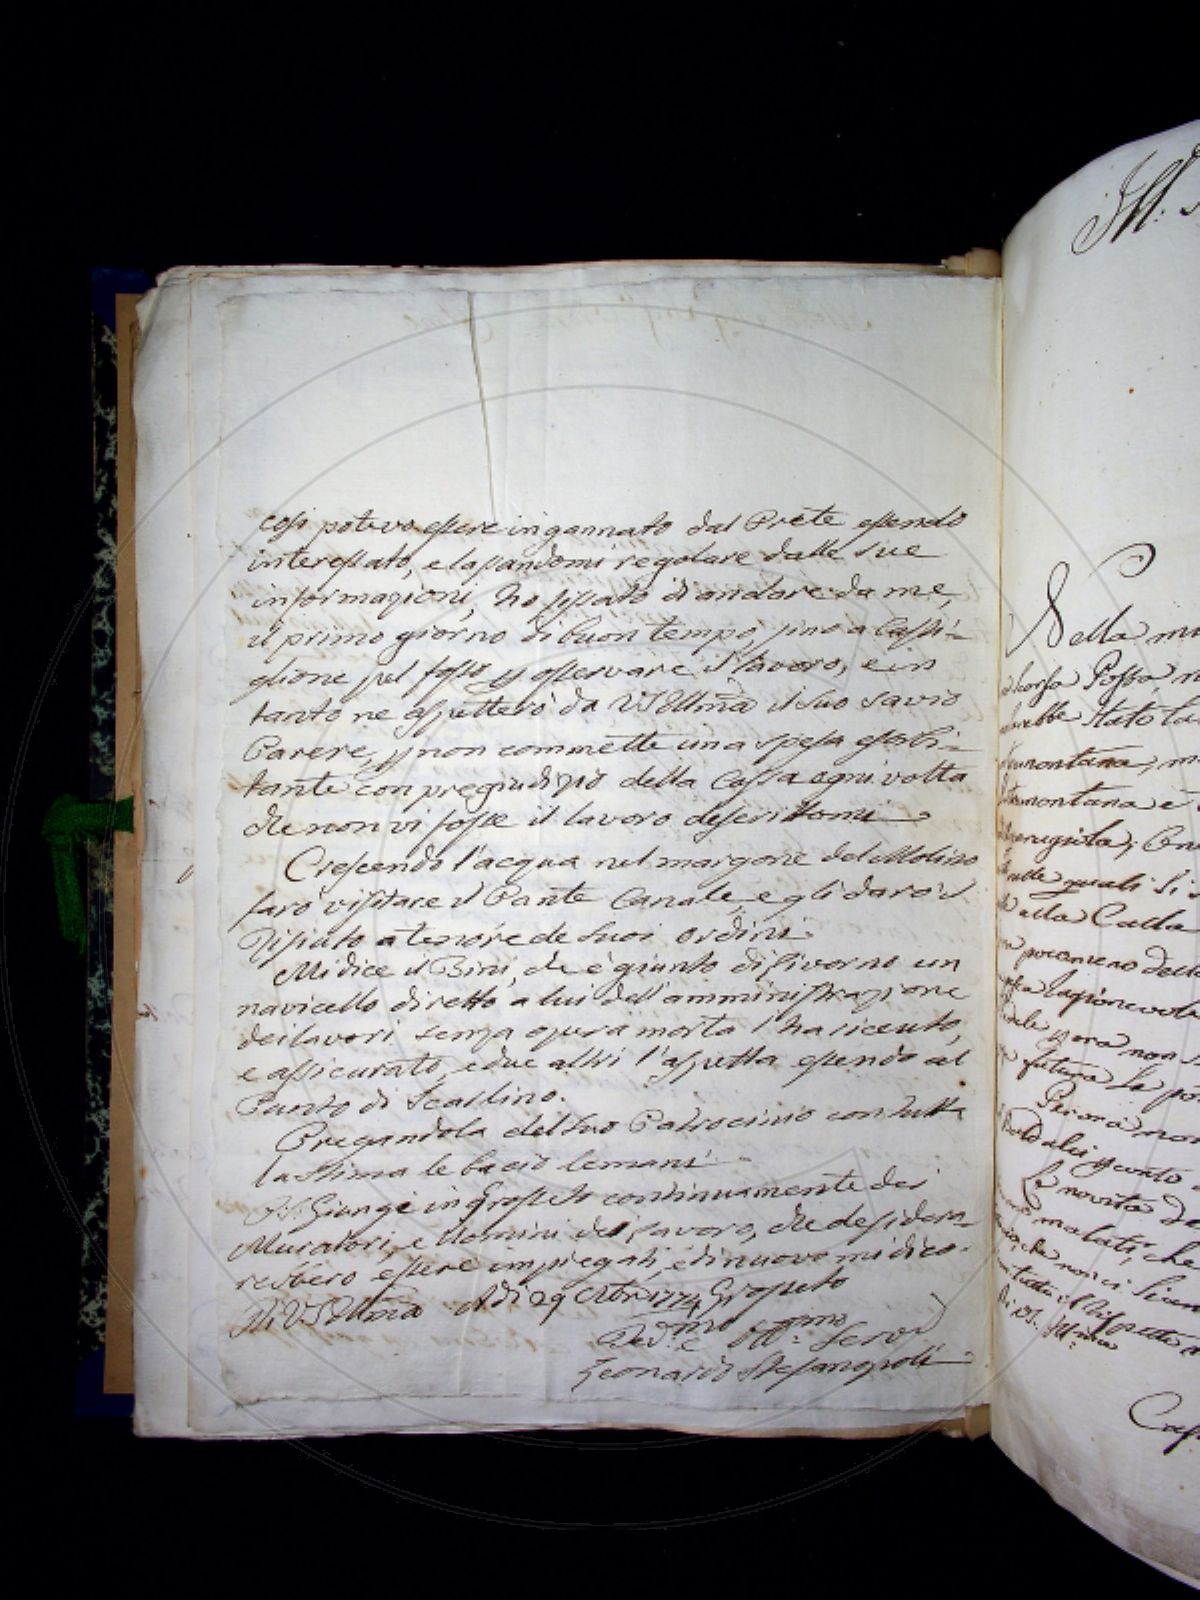 così potevo essere ingannato dal Prete essendo
interessato, e lasandomi regolare dalle sue
informazioni, ho fissato di andare da me,
il primo giorno di buon tempo, sino a Casti=
glione pel fosso p osservare il lavoro, e in
tanto ne aspetterò da VS Illma il suo savio
Parere, p non commette una spesa esorbi=
tante con pregiudizio della Cassa ogni volta
che non vi fosse il lavoro descrittomi
Crescendo l'acqua nel margone del Molino
farò visitare il Ponte Canale, e gli darò il
disfiato a tenore de suoi ordini.
Mi dice il Bini, che è giunto di Livorno un
navicello diretto a lui dell'amministrazione
dei lavori senza opera morta l'ha riceuto,
e assicurato, e due altri l'aspetta essendo al
Punto di Scarlino.
Pregandola del suo Patrocinio con tutta
la stima le bacio le mani
P.S. Giunge in Grosseto continuamente dei
Muratori, e Uomini del lavoro, che desidera=
rebbero essere impiegati, e di nuovo mi dico.
Di VS Illma Adi 29 Ottbr 1774 Grosseto
Dev.mo e Obb.mo Serv
Leonardo Stefanopoli
Ill:
Nella
scorsa Posta
sarebbe stato la
tramontana, m
tramontana è
nelle quali si
alla Calla
pocomeno dell
ragionevole
p ora non
futura le po
Perora non
La novità de
malati, che
che non ci sian
tutto il Rispetto
Di VS. Ill:ma